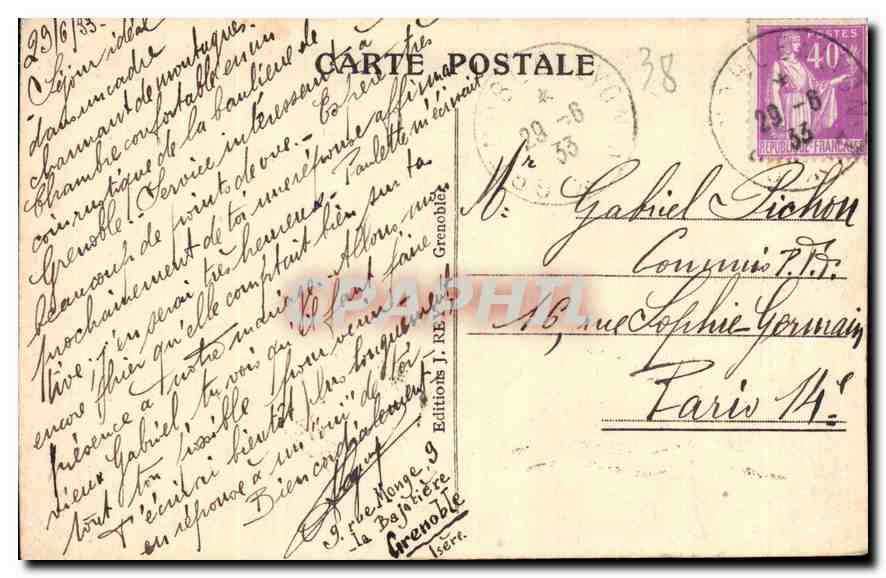 29/6/33.
Séjour idéal
dans un cadre
charmant de montagnes.
Chambre confortable en un
coin rustique de la banlieue de
Grenoble. Service intéressant à
beaucoup de points de vue. - Espère très
prochainement de toi une réponse affirma
tive. J'en serai très heureux. Paulette m'écrivait
encore hier qu'elle comptait bien sur ta
présence à notre mariage. Allons, mon
vieux Gabriel tu vois qu'il faut faire
tout ton possible pour venir.
T'écrirai bientôt plus longuement
en réponse à un "oui" de toi.
Bien cordialement
9, rue Monge, 9
La Bajatière
Grenoble
Isère.
CARTE POSTALE
Editions J. RE Grenoble
38
POSTES
40c
REPUBLIQUE-FRANÇAISE
29 -6
33
29 -6
33
CPAPHIL
Mr Gabriel Pichon
Commis P.T.T.
16, rue Sophie-Germain
Paris 14e